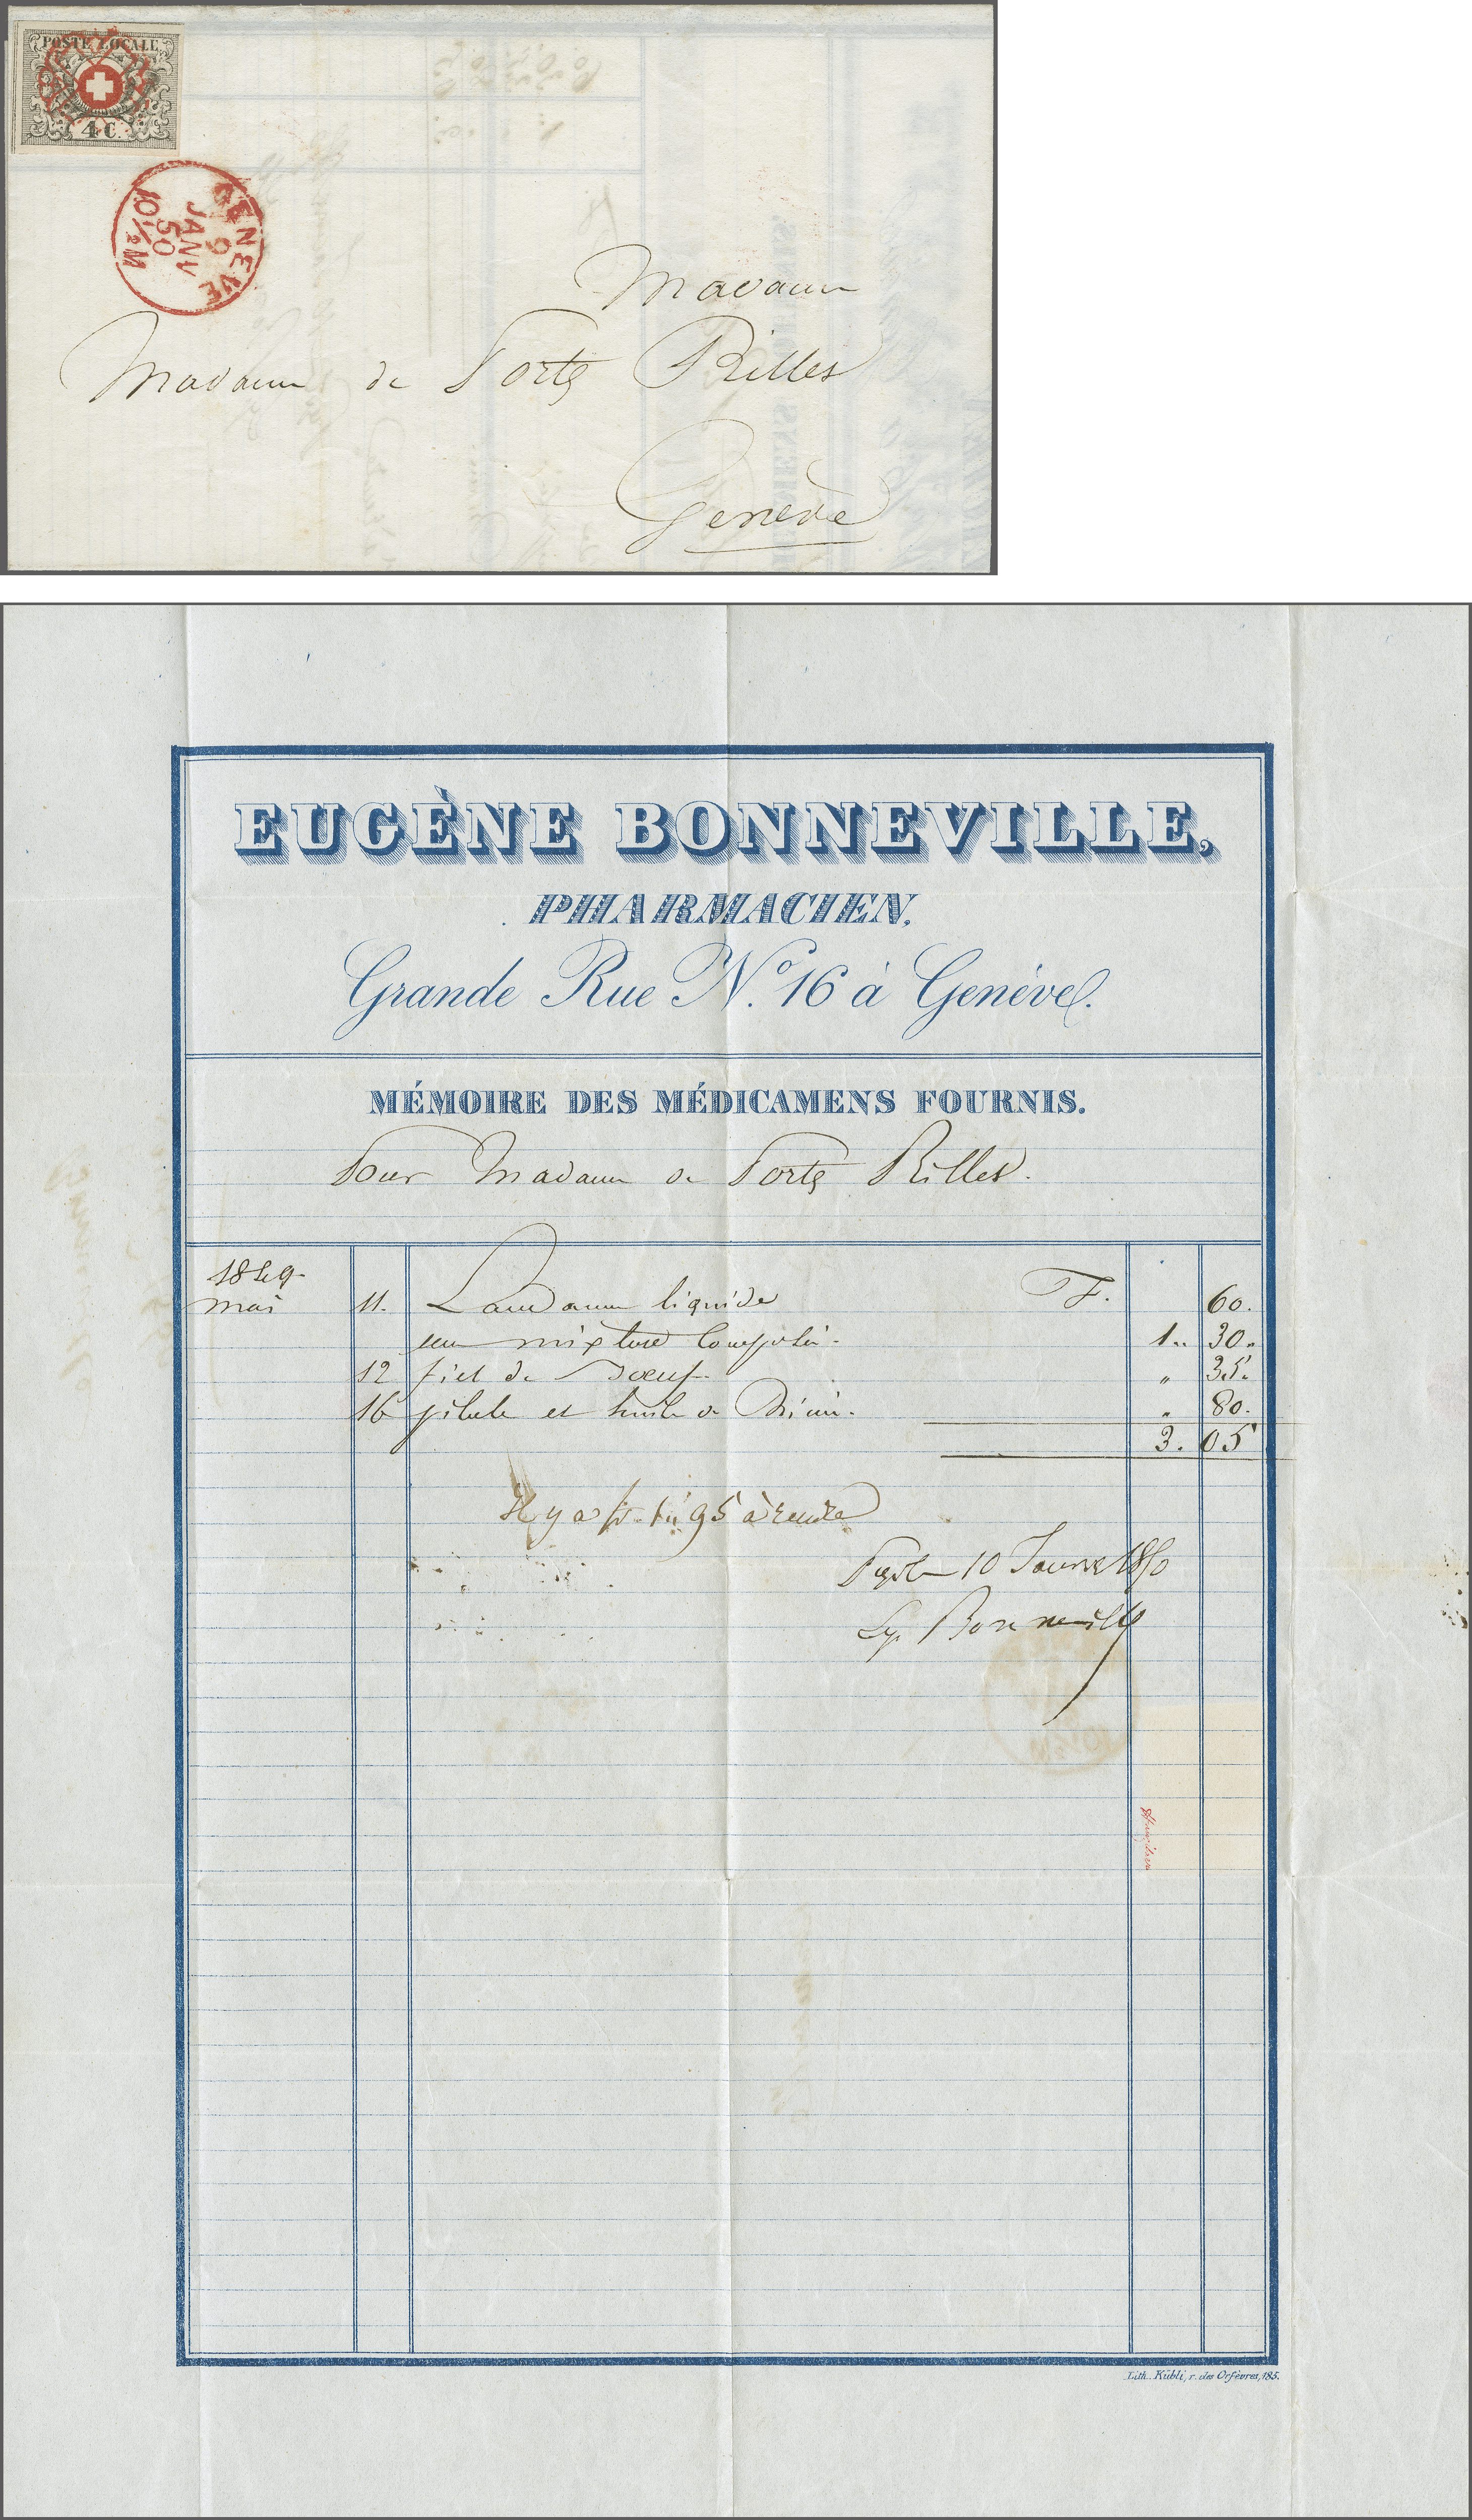 POSTE LOCALE
4 C.
GENÈVE
9
JANV
50
10½M
Madame
Madame de Portes Rilliet
Genève
EUGÈNE BONNEVILLE,
PHARMACIEN,
Grande Rue N.º 16 à Genève.
MÉMOIRE DES MÉDICAMENS FOURNIS.
Pour Madame de Portes Rilliet.
1849
mai 11. Laudanum liquide F. 60.
une mixture Composée. 1 " 30 "
12 fiel de Boeuf " 35.
16 pilule et huile de Ricin. " 80.
3. 05
Il y a fr. 1 " 95 à rendre
10 Janvier 1850
Bonneville
Lith. Kübli, r. des Orfèvres, 185.